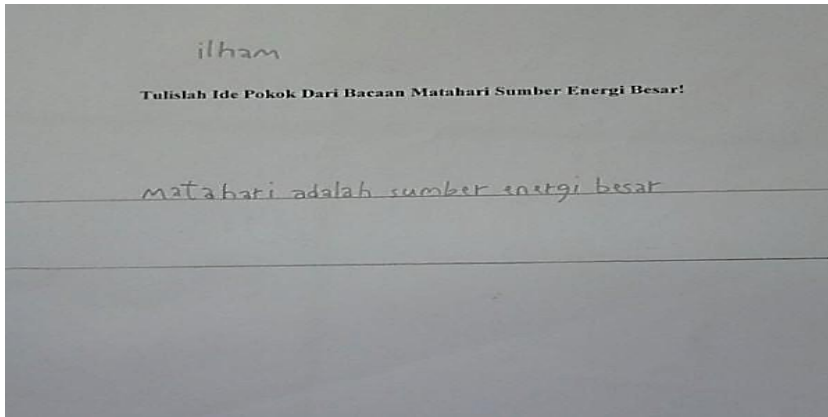 ilham
Tulislah Ide Pokok Dari Bacaan Matahari Sumber Energi Besar!
matahari adalah sumber energi besar